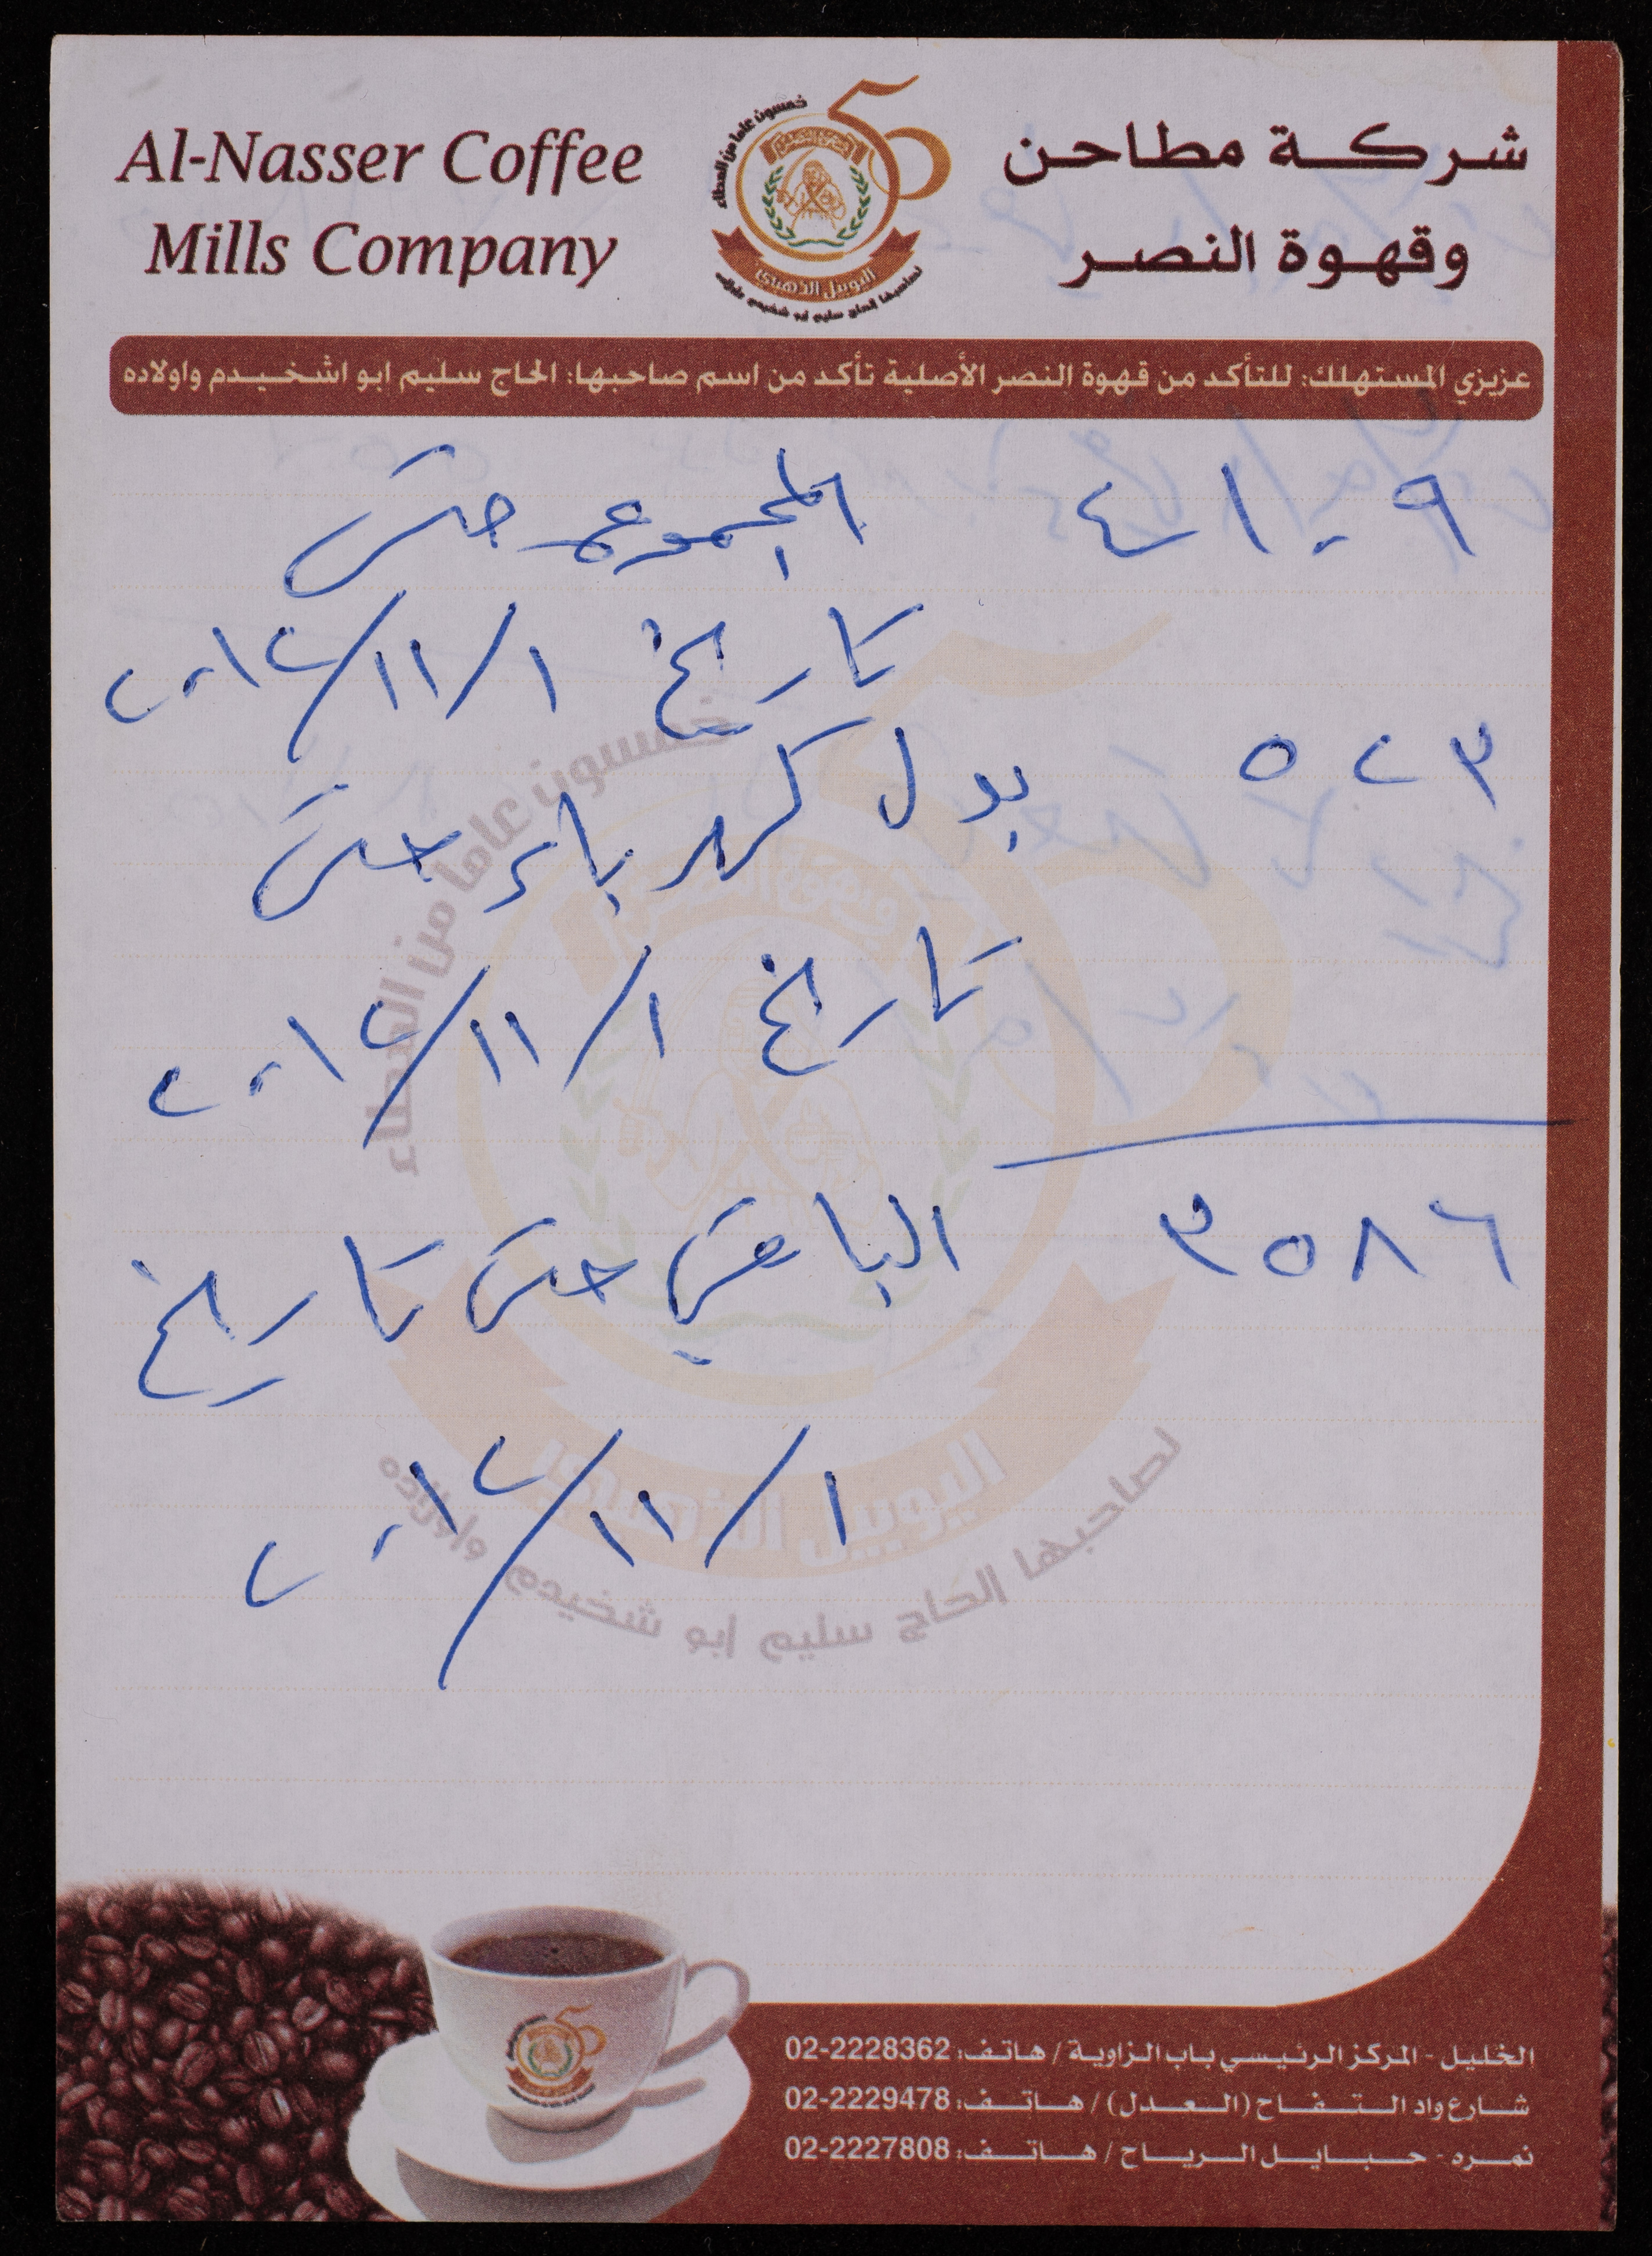 Al-Nasser Coffee
Mills Company
شركة مطاحن
وقهوة النصر
خمسون عاما من العطاء
50
اليوبيل الذهبي
لصاحبها الحاج سليم ابو شخيدم واولاده
عزيزي المستهلك: للتأكد من قهوة النصر الأصلية تأكد من اسم صاحبها: الحاج سليم ابو اشخيدم واولاده
٤١٠٩ المجموع حتى
تاريخ ١/١١/٢٠١٢
٥٢٣ بدل كهرباء حتى
تاريخ ١/١١/٢٠١٢
٣٥٨٦ الباقي حتى تاريخ
١/١١/٢٠١٢
خمسون عاما من العطاء
اليوبيل الذهبي
لصاحبها الحاج سليم ابو شخيدم واولاده
الخليل - المركز الرئيسي باب الزاوية / هاتف: 02-2228362
شارع واد التفاح (العدل) / هاتف: 02-2229478
نمره - حبايل الرياح / هاتف: 02-2227808